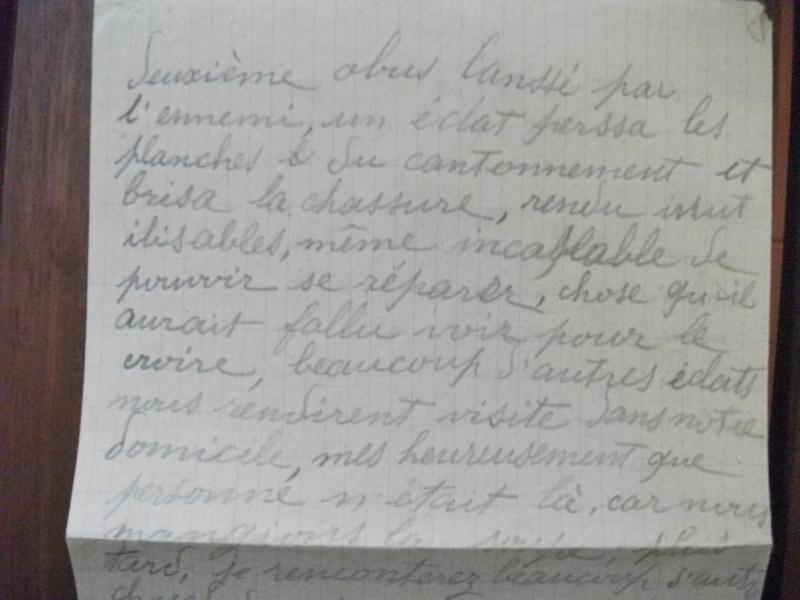 deuxième obus lanssé par
l'ennemi, un éclat perssa les
planches du cantonnement et
brisa la chassure, rendu inut
ilisables, même incapable de
pouvoir se réparer, chose qu-il
aurait fallu voir pour le
croire, beaucoup d'autres éclats
nous rendirent visite dans notre
domicile, mes heureusement que
personne n'était là, car nous
mangions la soupe, plus
tard, je rencontrerez beaucoup d'autr